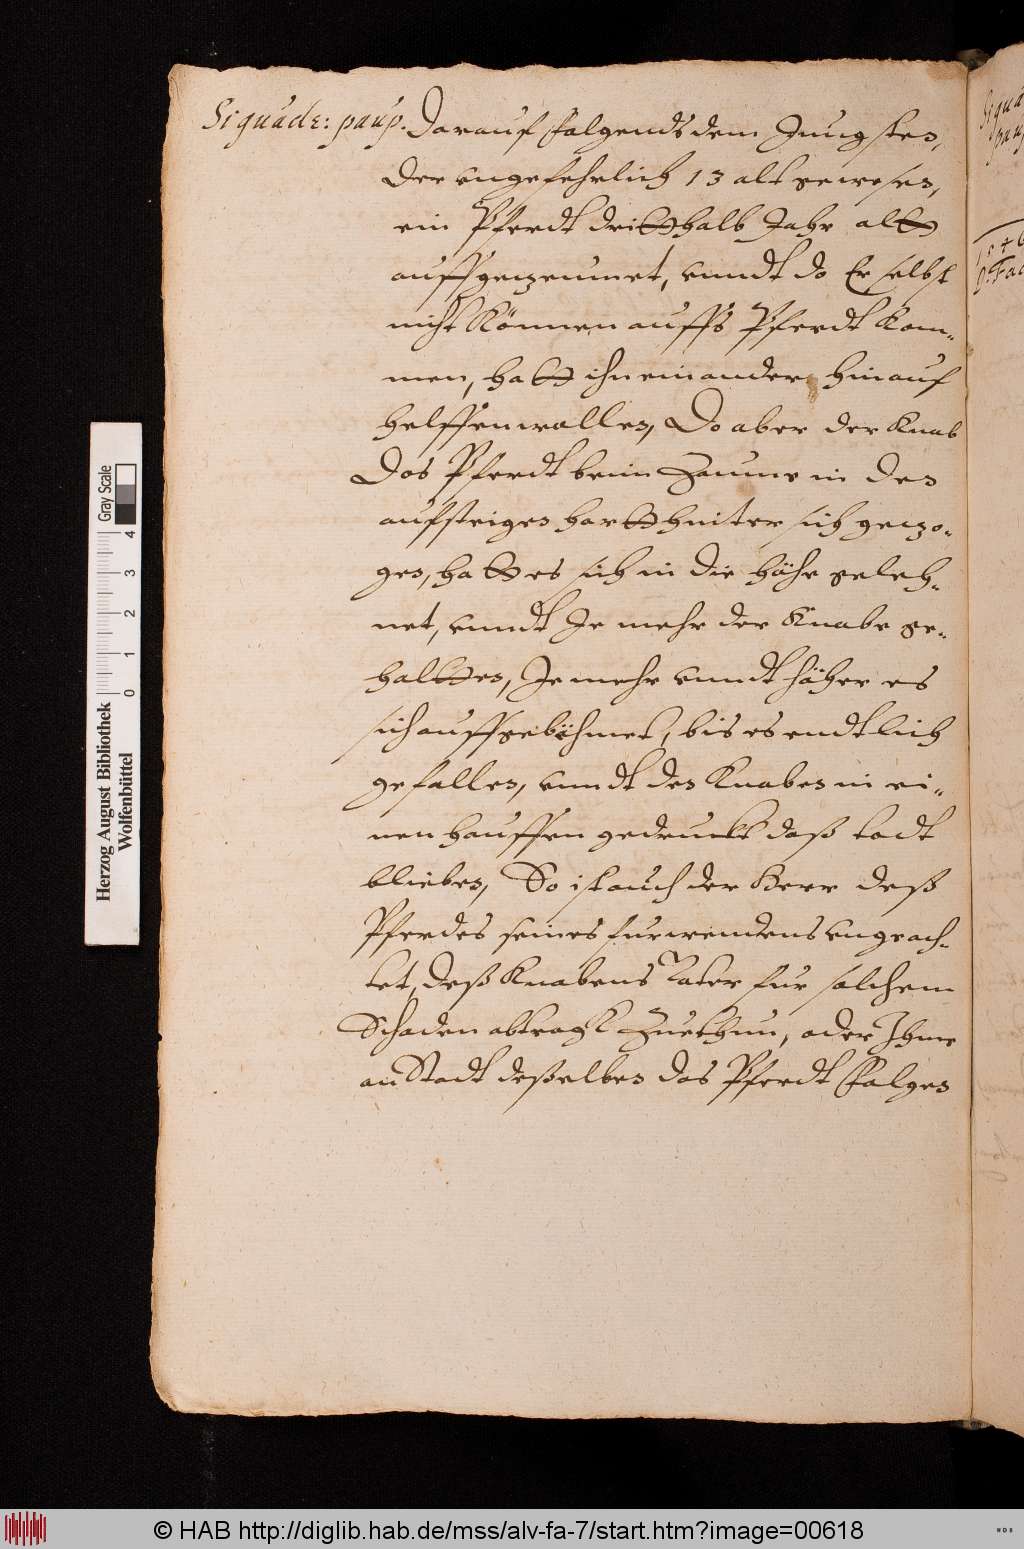 Si quadr: paup. Darauf folgends dem Jungsten,
der ungefehrlich 13 alt gewesen,
ein Pferdt dritthalb Jahr altt
auffgezeumet, unndt do Er selbst
nicht Können auffs Pferdt Kom-
men, hatt ihn ein ander hinauf
helffen wollen, Do aber der Knab
das Pferdt beim Zaume in dem
aufsteigen hartt hinter sich gezo-
gen, hatt es sich in die höhe geleh-
net, unndt Je mehr der Knabe ge-
haltten, Je mehr unndt höher es
sich auffgebähmet, bis es endtlich
gefallen, unndt den Knaben in ei-
nen hauffen gedruckt daß todt
blieben, So ist auch der Herr deß
Pferdes seines furwendens ungeach-
tet, deß Knabens Vater fur solchem
Schaden abtragk Zuethun, oder Ihme
an Stadt deßelben das Pferdt folgen
1546
D. Fac
Herzog August Bibliothek
Wolfenbüttel
Gray Scale
0 1 2 3 4
© HAB http://diglib.hab.de/mss/alv-fa-7/start.htm?image=00618